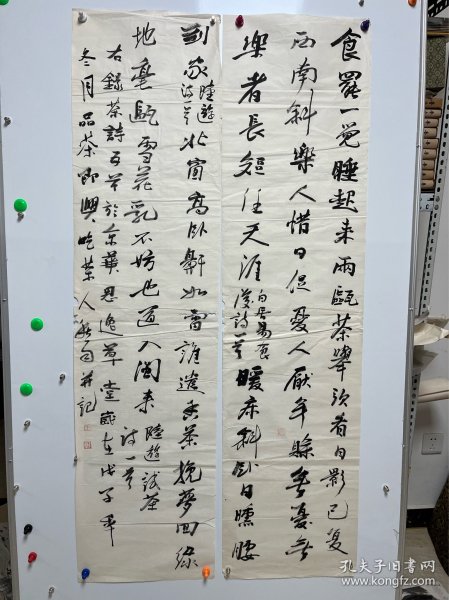 食罢一觉睡起来两瓯茶举头看日影已复
西南斜乐人惜日促忧人厌年赊无忧无
乐者长短任天涯
白居易食
后诗一首
暖床斜卧日曛腰
陆游
诗一首
北窗高卧鼾如雷谁遣香茶挽梦回绿
地毫瓯雪花乳不妨也道入闽来
陆游试茶
诗一首
右录茶诗
草堂岁在戊子年
冬月品茶即兴吃茶人
并记
孔夫子旧书网
www.kongfz.com